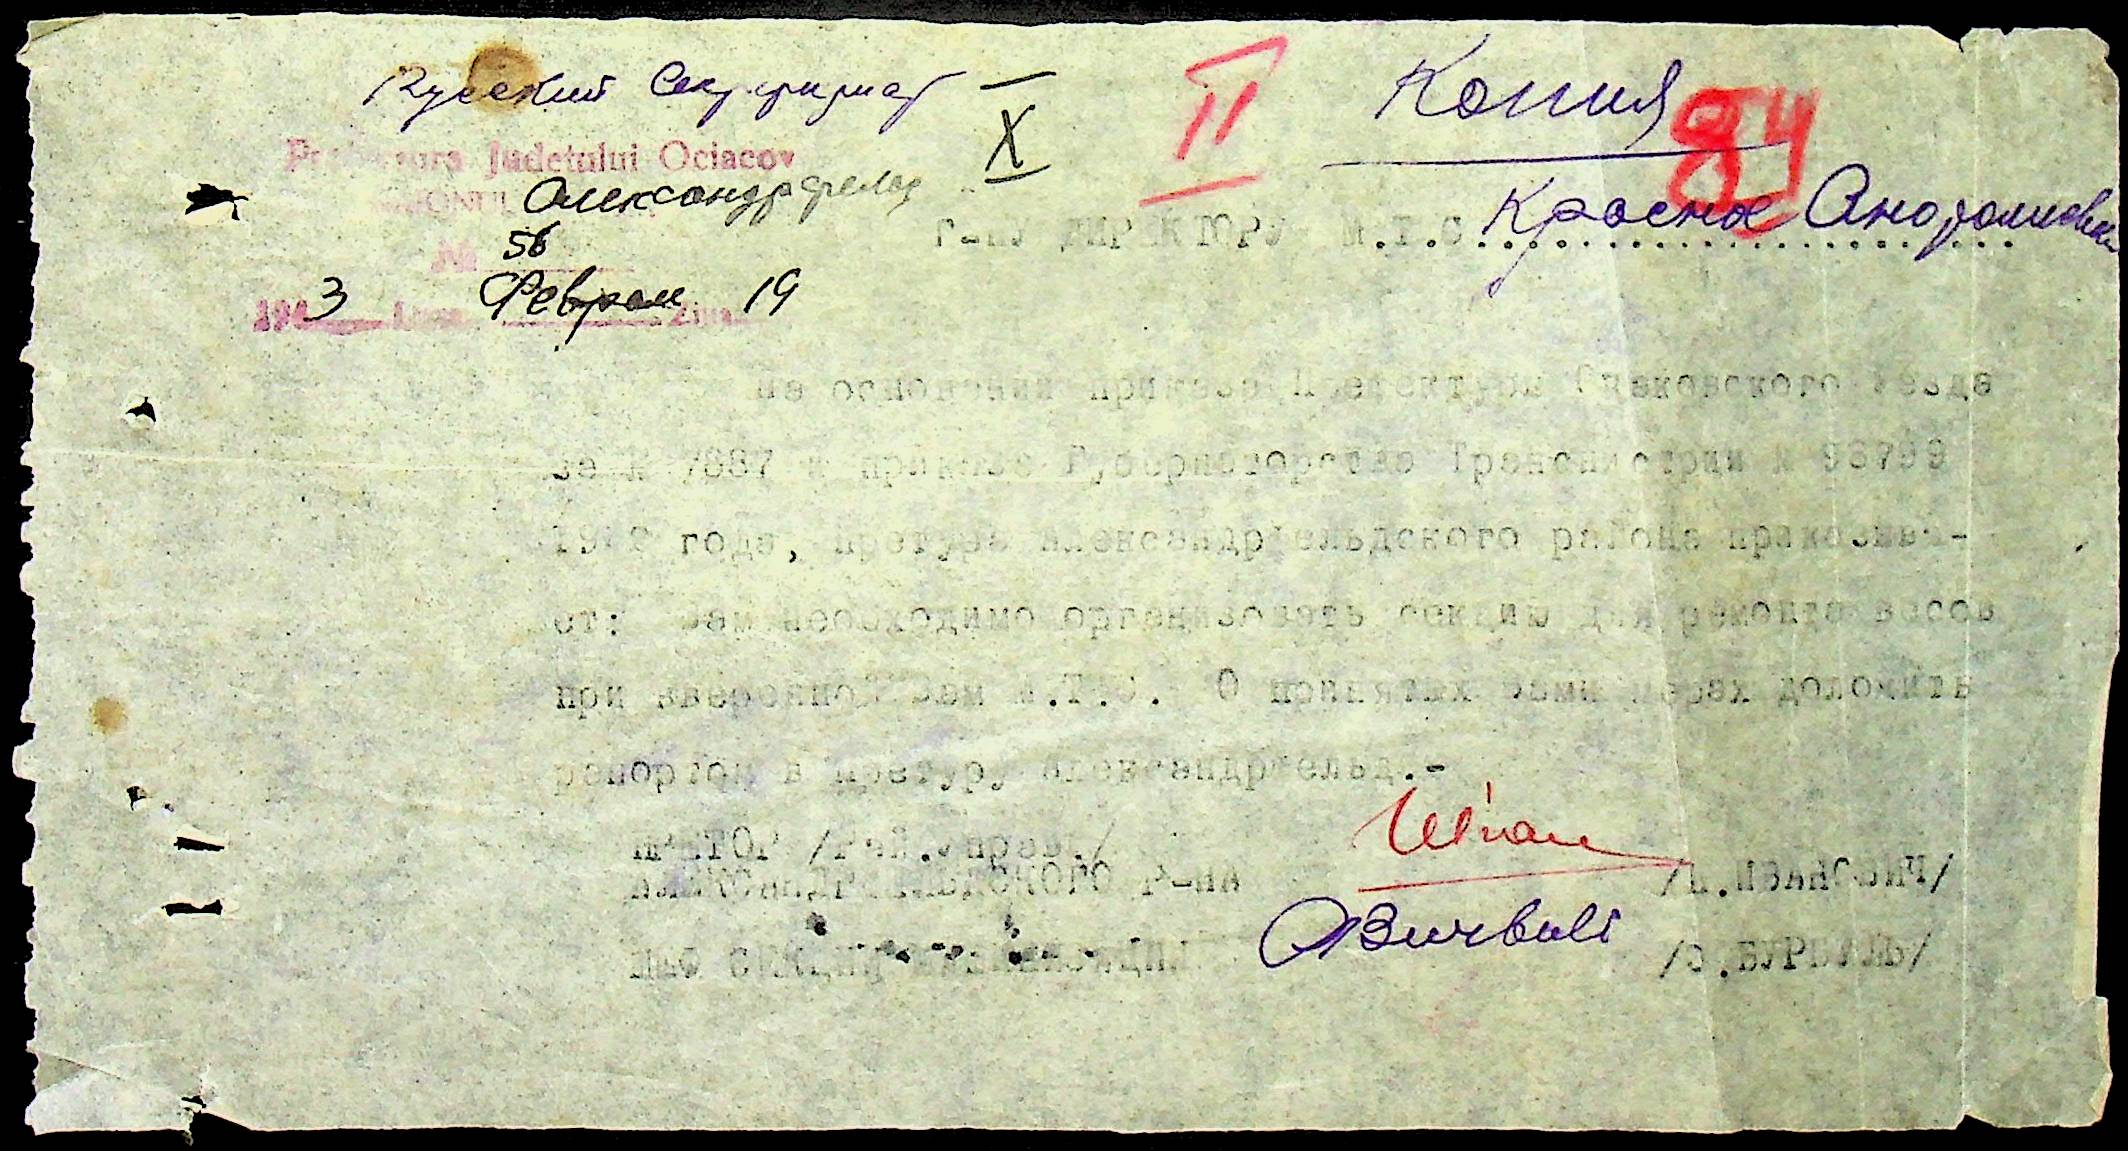 Русский Секретариат
X
II
Копия
84
Prefectura Judetului Ociacov
Александрфельд
№ 56
1943 Luna Феврал Ziua 19
Г-НУ ДИРЕКТОРУ М.Т.С. Красно Анатолиевка
На основании приказа Префектуры Очаковского уезда
за № 7887 и приказа Губернаторства Транснистрии № 98799
1942 года, Претура Александрфельдского района приказыва-
ет: Вам необходимо организовать секцию для ремонта весов
при вверенной Вам М.Т.С. О принятых Вами мерах доложить
рапортом в Претуру Александрфельд.-
ПРЕТОР /Рай.Управ./
АЛЕКСАНДРФЕЛЬДСКОГО Р-НА /П.ИВАНОВИЧ/
Burbuli
ШЕФ СЕКЦИИ /О.БУРБУЛЬ/